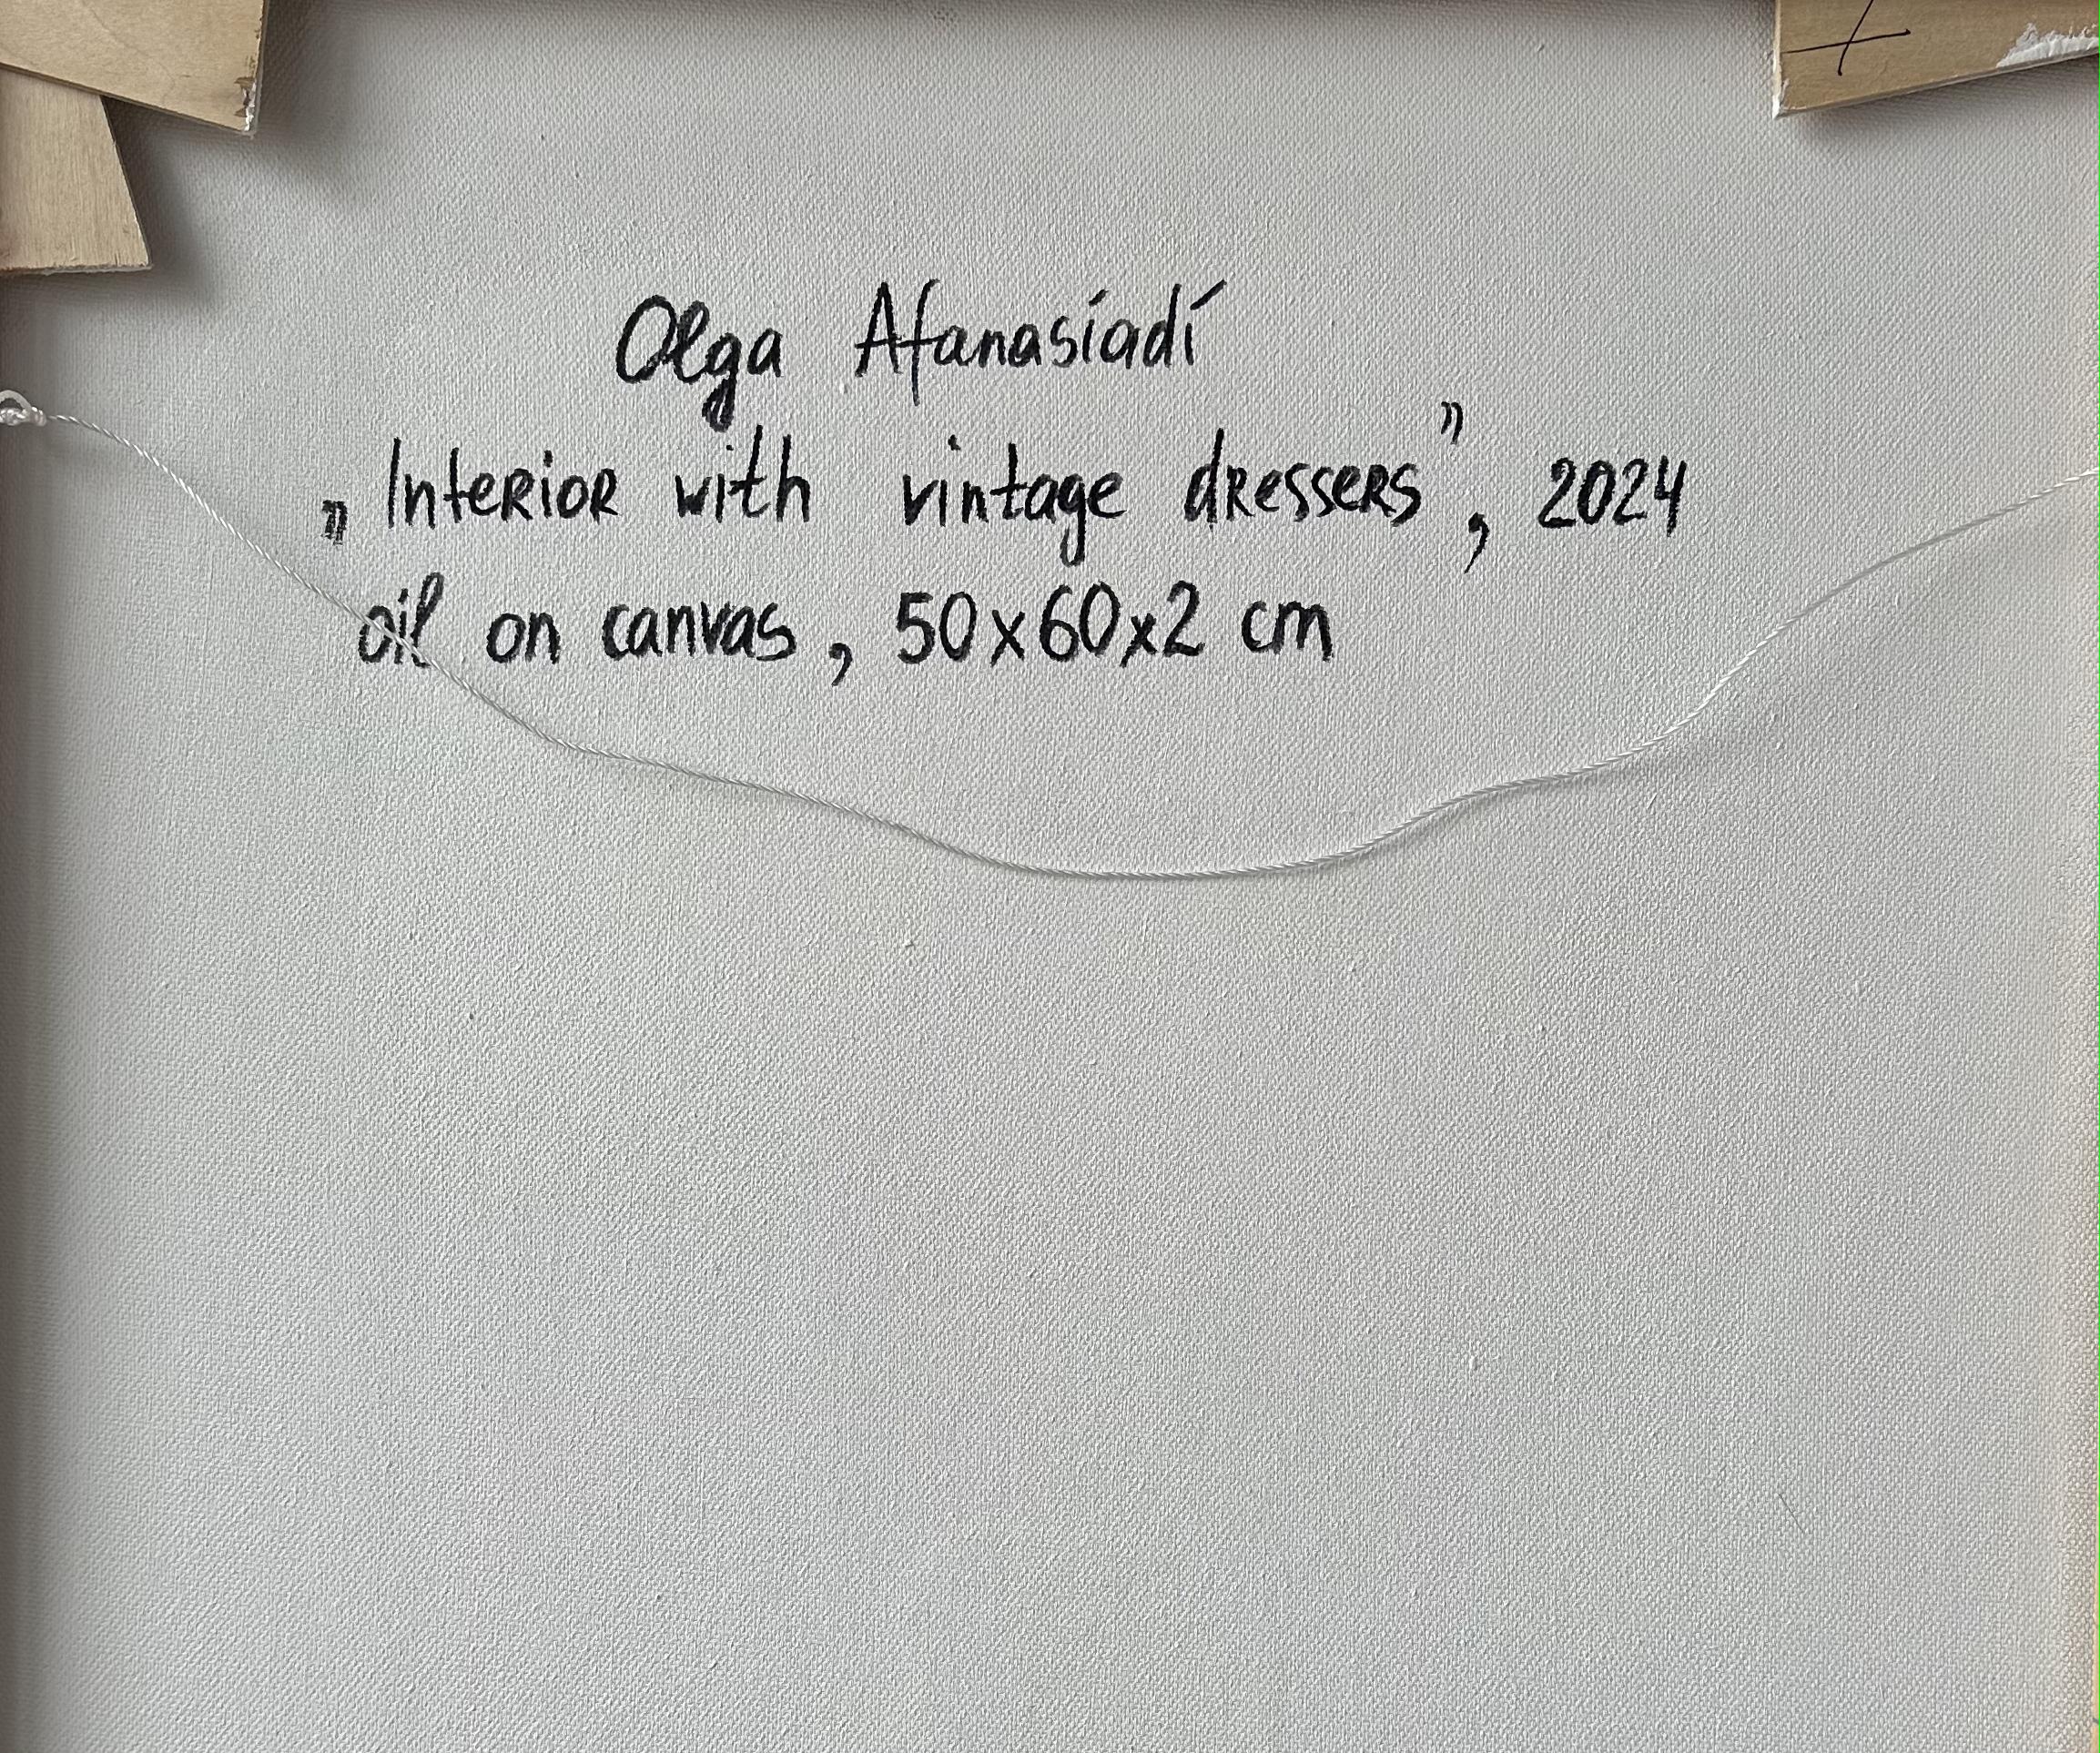 Olga Afanasiadi
„Interior with vintage dressers”, 2024
oil on canvas, 50x60x2 cm